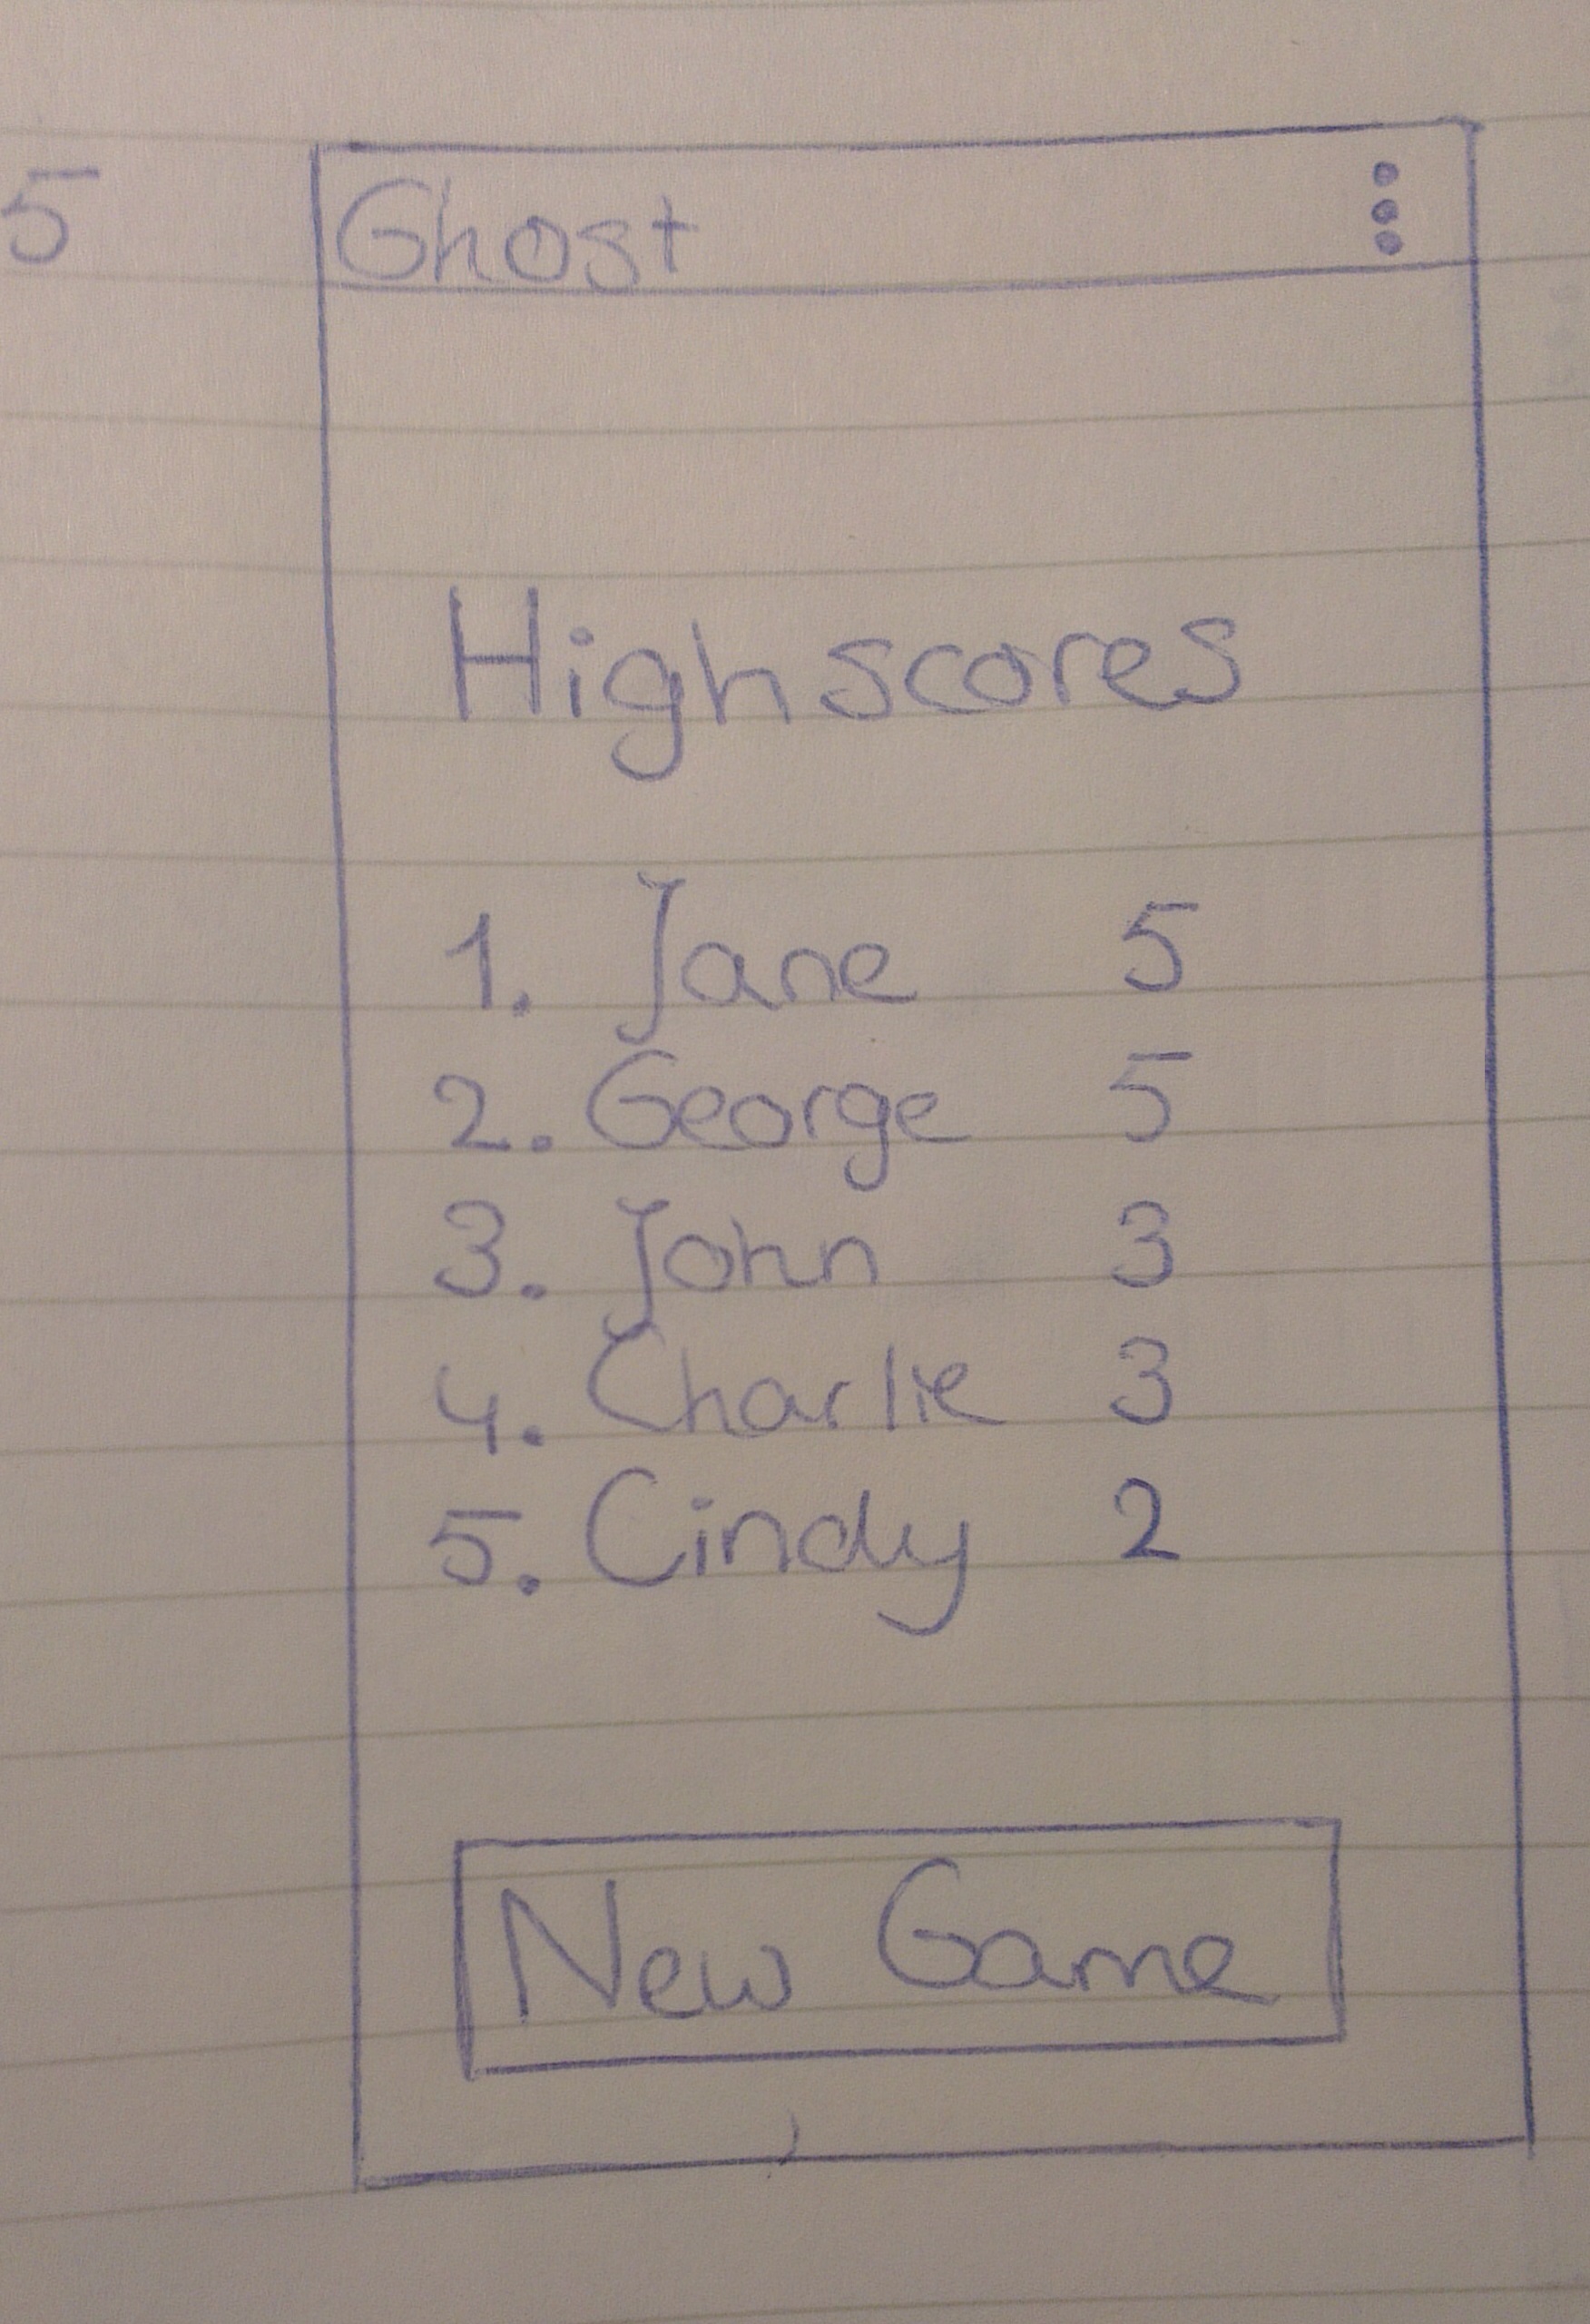 5
Ghost
Highscores
1. Jane 5
2. George 5
3. John 3
4. Charlie 3
5. Cindy 2
New Game